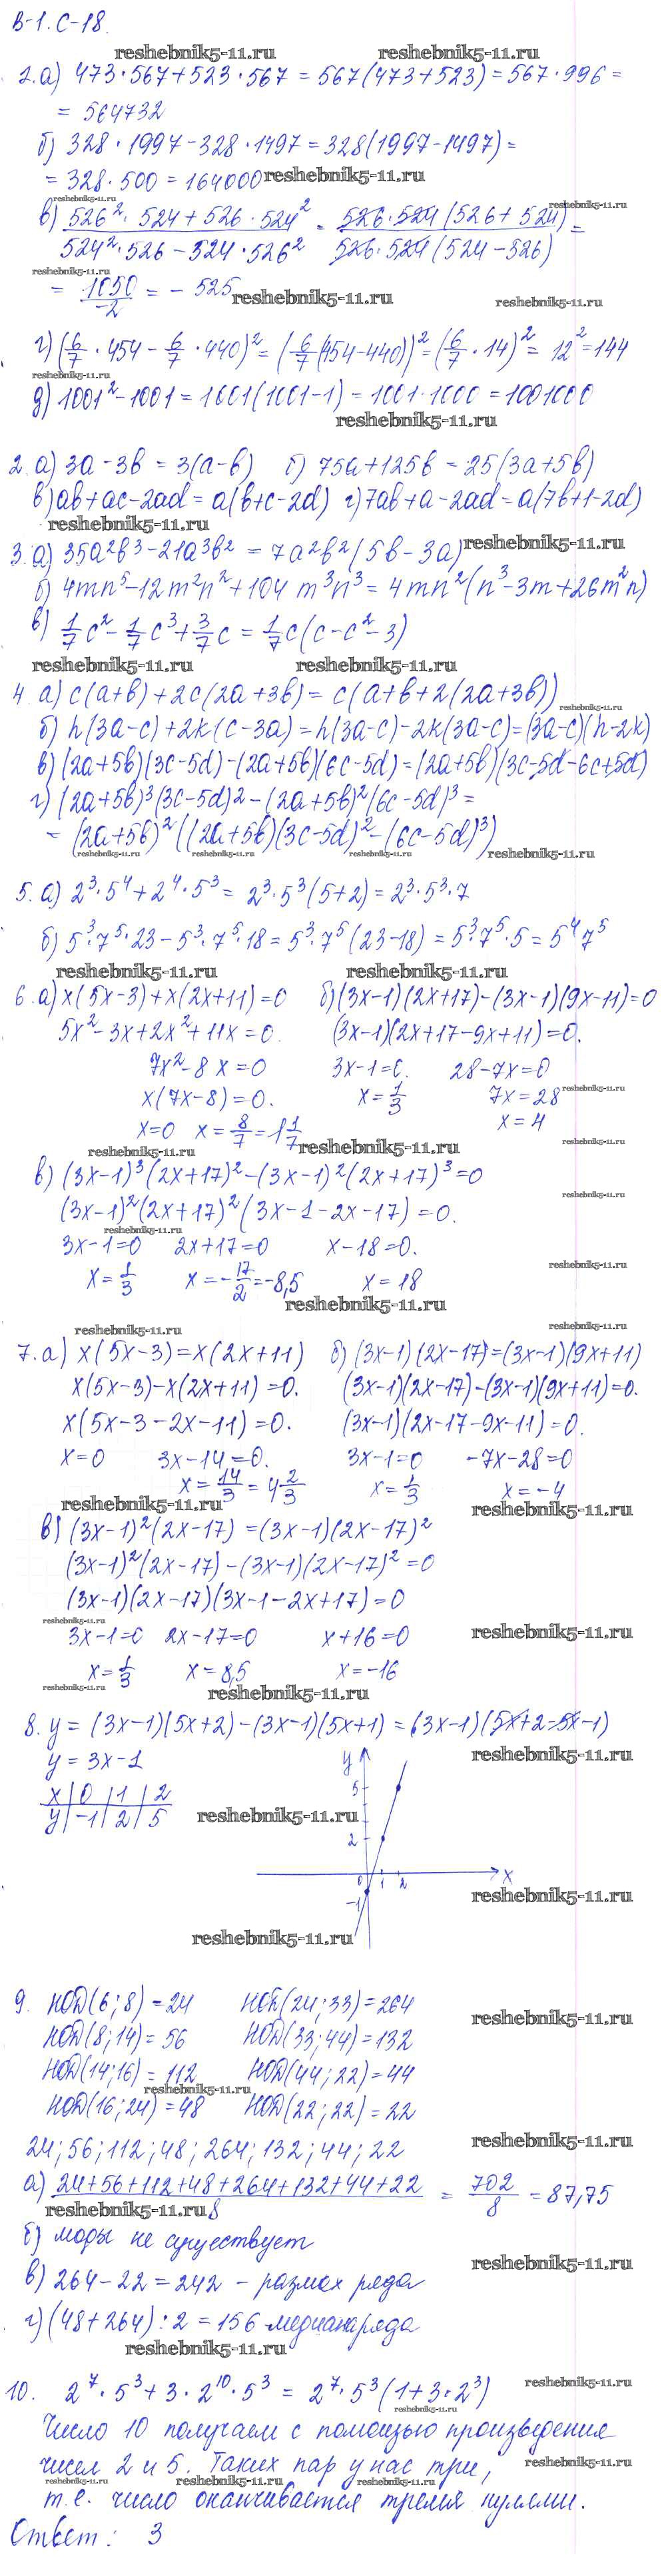 В-1. С-18.
reshebnik5-11.ru reshebnik5-11.ru
2.а) 473·567+523·567 = 567(473+523) = 567·996 =
= 564732
б) 328·1997-328·1497 = 328(1997-1497) =
= 328·500 = 164000 reshebnik5-11.ru
reshebnik5-11.ru reshebnik5-11.ru
в) (526²·524+526·524²)/(524²·526-524·526²) = (526·524(526+524))/(526·524(524-526)) =
reshebnik5-11.ru
= 1050/-2 = -525 reshebnik5-11.ru reshebnik5-11.ru
г) (6/7·454 - 6/7·440)² = (6/7(454-440))² = (6/7·14)² = 12² = 144
reshebnik5-11.ru
д) 1001²-1001 = 1001(1001-1) = 1001·1000 = 1001000
reshebnik5-11.ru
2. а) 3a-3b = 3(a-b) б) 75a+125b = 25(3a+5b)
в) ab+ac-2ad = a(b+c-2d) г) 7ab+a-2ad = a(7b+1-2d)
reshebnik5-11.ru
3. а) 35a²b³-21a³b² = 7a²b²(5b-3a) reshebnik5-11.ru
б) 4mn⁵-12m²n²+104m³n³ = 4mn²(n³-3m+26m²n)
в) 1/7c² - 1/7c³ + 3/7c = 1/7c(c-c²-3)
reshebnik5-11.ru reshebnik5-11.ru
4. а) c(a+b)+2c(2a+3b) = c(a+b+2(2a+3b))
reshebnik5-11.ru
б) h(3a-c)+2k(c-3a) = h(3a-c)-2k(3a-c) = (3a-c)(h-2k)
в) (2a+5b)(3c-5d)-(2a+5b)(6c-5d) = (2a+5b)(3c-5d-6c+5d)
г) (2a+5b)³(3c-5d)2-(2a+5b)²(6c-5d)³ =
= (2a+5b)²((2a+5b)(3c-5d)²-(6c-5d)³)
reshebnik5-11.ru reshebnik5-11.ru reshebnik5-11.ru
5. а) 2³·5⁴+2⁴·5³ = 2³·5³(5+2) = 2³·5³·7
б) 5³·7⁵·23-5³·7⁵·18 = 5³·7⁵(23-18) = 5³·7⁵·5 = 5⁴7⁵
reshebnik5-11.ru reshebnik5-11.ru
6. а) x(5x-3)+x(2x+11)=0 б) (3x-1)(2x+17)-(3x-1)(9x-11)=0
5x²-3x+2x²+11x=0. (3x-1)(2x+17-9x+11)=0.
7x²-8x=0 3x-1=0. 28-7x=0
reshebnik5-11.ru
x(7x-8)=0. x=1/3 7x=28
x=0 x=8/7=1 1/7 x=4
reshebnik5-11.ru reshebnik5-11.ru
в) (3x-1)³(2x+17)²-(3x-1)²(2x+17)³=0
reshebnik5-11.ru
(3x-1)²(2x+17)²(3x-1-2x-17)=0.
reshebnik5-11.ru
3x-1=0 2x+17=0 x-18=0.
reshebnik5-11.ru
x=1/3 x=-17/2=-8,5 x=18
reshebnik5-11.ru
reshebnik5-11.ru reshebnik5-11.ru
7. а) x(5x-3)=x(2x+11) б) (3x-1)(2x-17)=(3x-1)(9x+11)
x(5x-3)-x(2x+11)=0. (3x-1)(2x-17)-(3x-1)(9x+11)=0.
x(5x-3-2x-11)=0. (3x-1)(2x-17-9x-11)=0.
x=0 3x-14=0. 3x-1=0 -7x-28=0
x=14/3=4 2/3 x=1/3 x=-4
reshebnik5-11.ru reshebnik5-11.ru
в) (3x-1)²(2x-17)=(3x-1)(2x-17)²
(3x-1)²(2x-17)-(3x-1)(2x-17)²=0
(3x-1)(2x-17)(3x-1-2x+17)=0
reshebnik5-11.ru
3x-1=0 2x-17=0 x+16=0 reshebnik5-11.ru
x=1/3 x=8,5 x=-16
reshebnik5-11.ru reshebnik5-11.ru
8. y=(3x-1)(5x+2)-(3x-1)(5x+1)=(3x-1)(5x+2-5x-1)
y=3x-1 y reshebnik5-11.ru
x | 0 | 1 | 2 5
y | -1 | 2 | 5 reshebnik5-11.ru
2
0 1 2 x
-1 reshebnik5-11.ru
reshebnik5-11.ru
9. НОД(6;8)=24 НОД(24;33)=264
reshebnik5-11.ru
НОД(8;14)=56 НОД(33;44)=132
НОД(14;16)=112 НОД(44;22)=44
reshebnik5-11.ru
НОД(16;24)=48 НОД(22;22)=22
24; 56; 112; 48; 264; 132; 44; 22 reshebnik5-11.ru
а) (24+56+112+48+264+132+44+22)/8 = 702/8 = 87,75
reshebnik5-11.ru
б) моды не существует
reshebnik5-11.ru
в) 264-22=242 - размах ряда
г) (48+264):2=156 медиана ряда
reshebnik5-11.ru
10. 2⁷·5³+3·2¹⁰·5³ = 2⁷·5³(1+3·2³) reshebnik5-11.ru
reshebnik5-11.ru
Число 10 получаем с помощью произведения
чисел 2 и 5. Таких пар у нас три, reshebnik5-11.ru
reshebnik5-11.ru reshebnik5-11.ru reshebnik5-11.ru
т.е. число оканчивается тремя нулями.
Ответ: 3